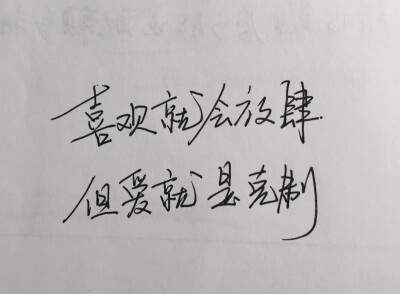 喜欢就会放肆.
但爱就是克制